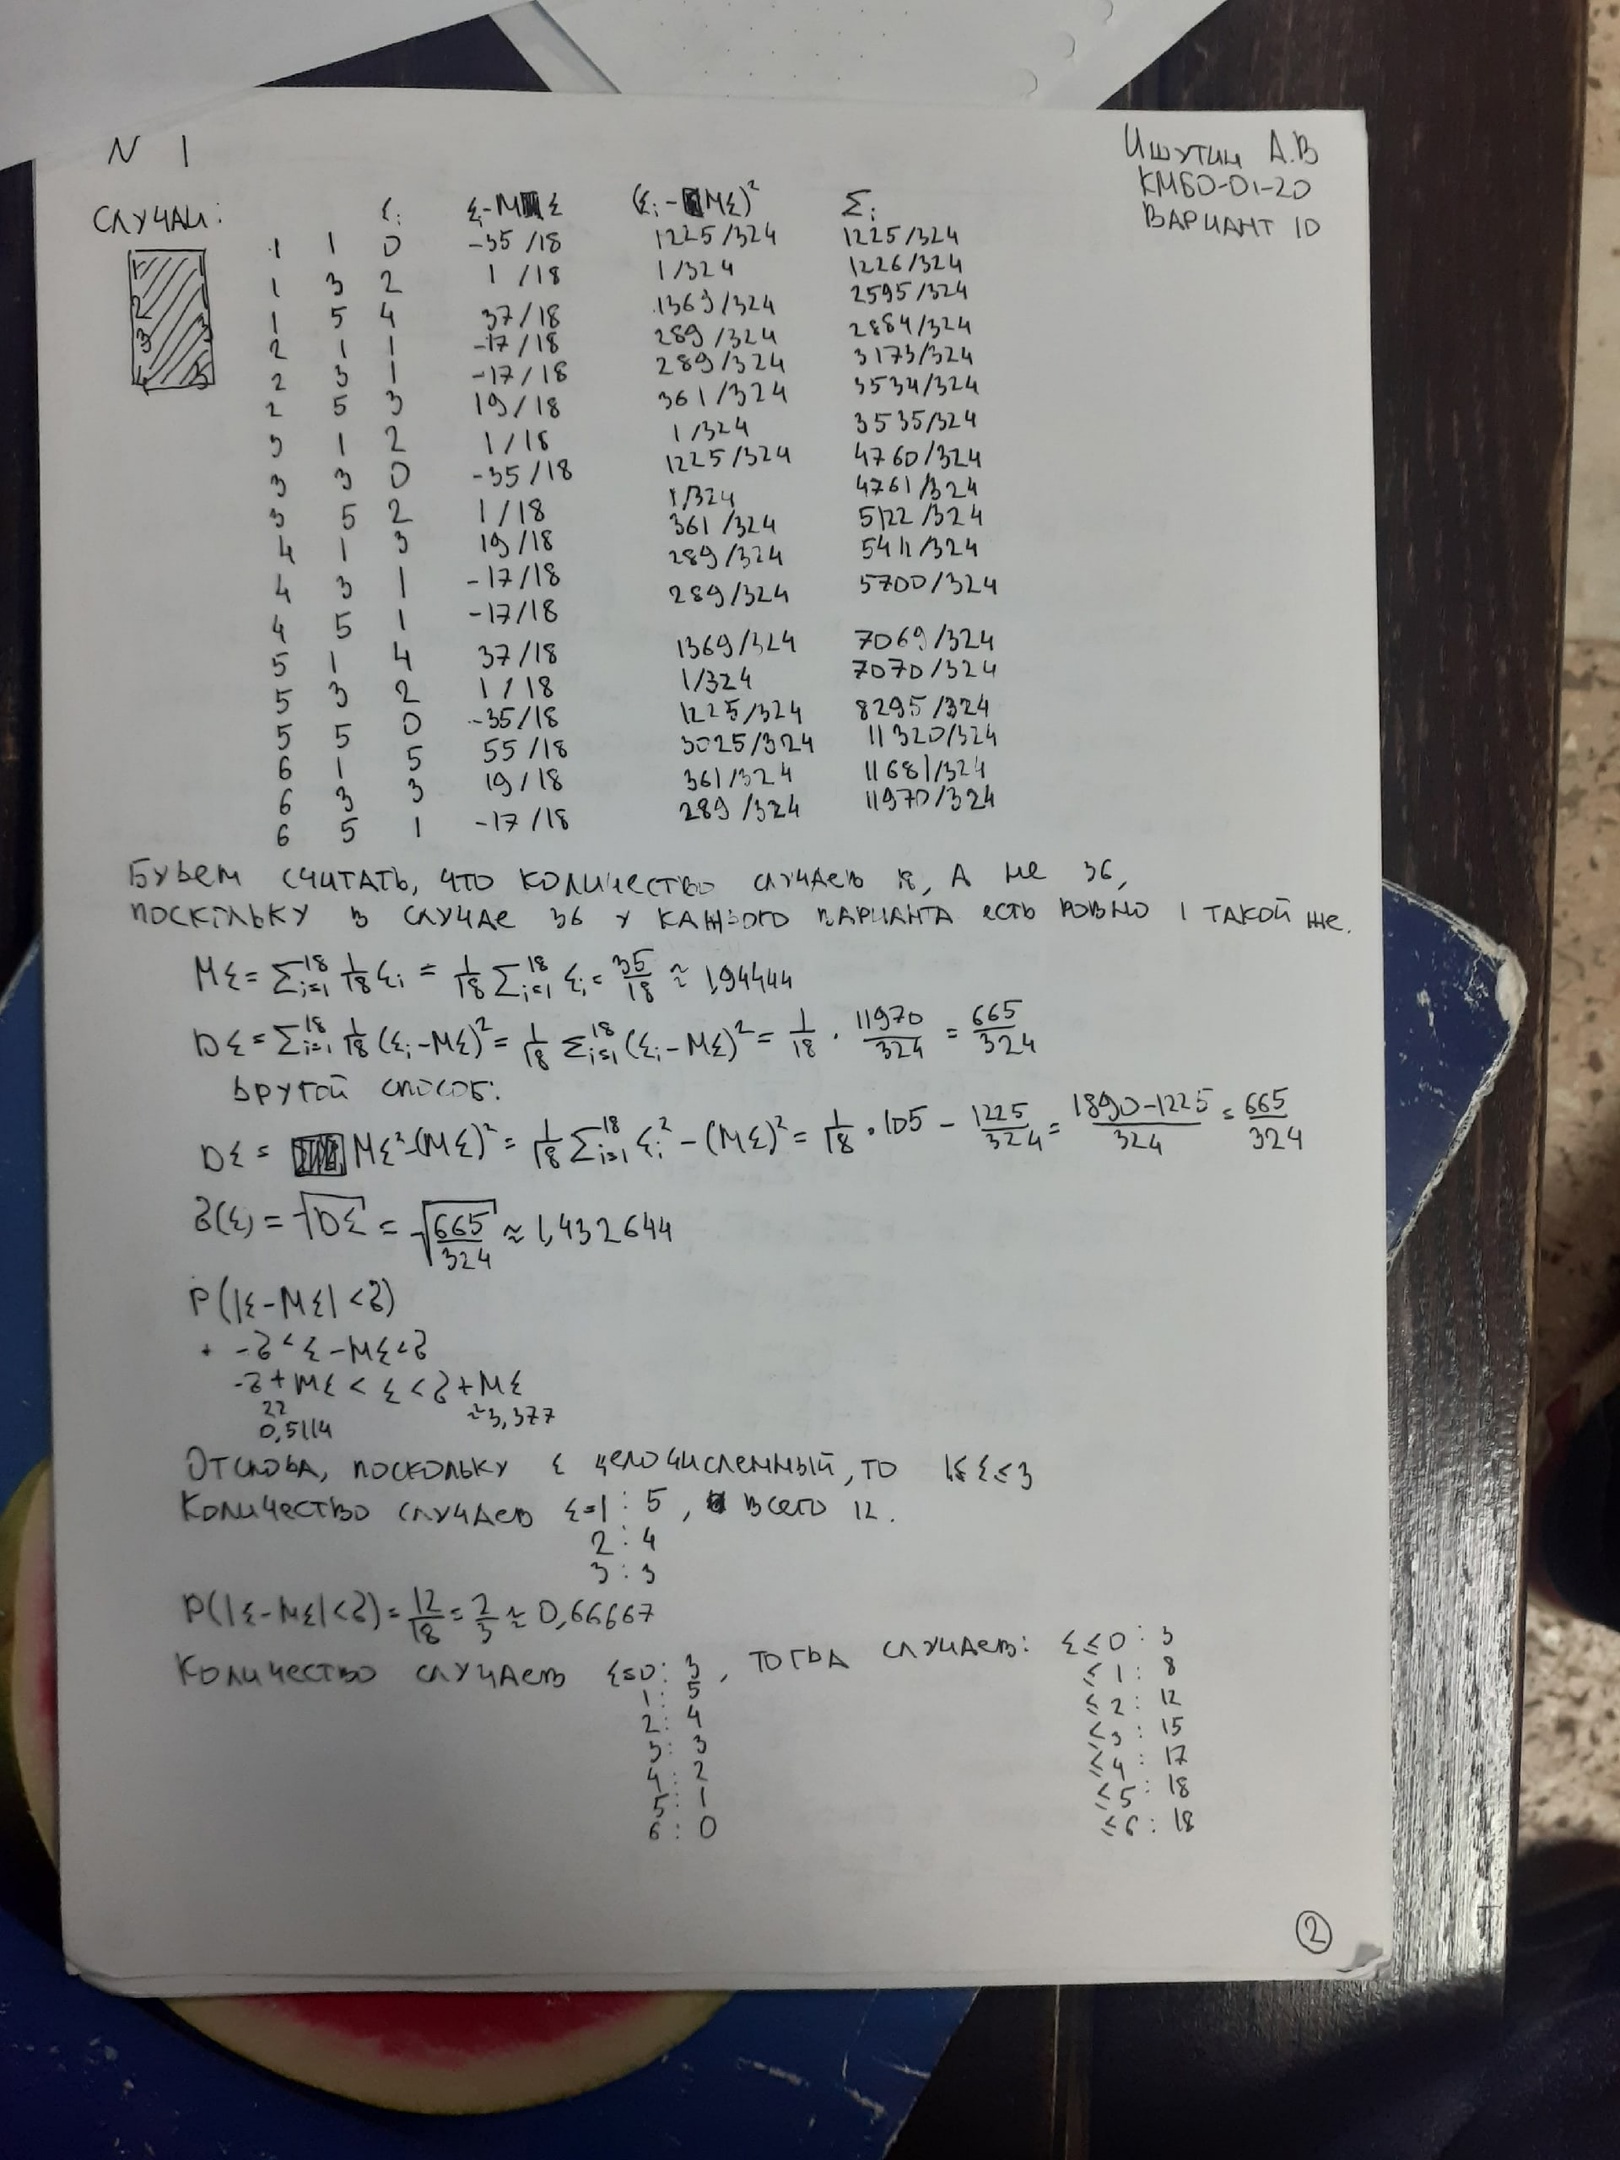 N 1
Ишутин А.В
КМБО-01-20
ВАРИАНТ 10
СЛУЧАИ:
ξi ξi-Mξ (ξi-Mξ)² Σi
1 1 0 -35/18 1225/324 1225/324
1 3 2 1/18 1/324 1226/324
1 5 4 37/18 1369/324 2595/324
2 1 1 -17/18 289/324 2884/324
2 3 1 -17/18 289/324 3173/324
2 5 3 19/18 361/324 3534/324
3 1 2 1/18 1/324 3535/324
3 3 0 -35/18 1225/324 4760/324
3 5 2 1/18 1/324 4761/324
4 1 3 19/18 361/324 5122/324
4 3 1 -17/18 289/324 5411/324
4 5 1 -17/18 289/324 5700/324
5 1 4 37/18 1369/324 7069/324
5 3 2 1/18 1/324 7070/324
5 5 0 -35/18 1225/324 8295/324
6 1 5 55/18 3025/324 11320/324
6 3 3 19/18 361/324 11681/324
6 5 1 -17/18 289/324 11970/324
БУДЕМ СЧИТАТЬ, ЧТО КОЛИЧЕСТВО СЛУЧАЕВ 18, А НЕ 36,
ПОСКОЛЬКУ В СЛУЧАЕ 36 У КАЖДОГО ВАРИАНТА ЕСТЬ РОВНО 1 ТАКОЙ ЖЕ.
Mξ = Σ_{i=1}^{18} 1/18 ξi = 1/18 Σ_{i=1}^{18} ξi = 35/18 ≈ 1,94444
Dξ = Σ_{i=1}^{18} 1/18 (ξi-Mξ)² = 1/18 Σ_{i=1}^{18} (ξi-Mξ)² = 1/18 · 11970/324 = 665/324
ДРУГОЙ СПОСОБ:
Dξ = Mξ²-(Mξ)² = 1/18 Σ_{i=1}^{18} ξi² - (Mξ)² = 1/18 · 105 - 1225/324 = 1890-1225/324 = 665/324
σ(ξ) = √Dξ = √665/324 ≈ 1,432644
P(|ξ-Mξ|<σ)
-σ<ξ-Mξ<σ
-σ+Mξ < ξ < σ+Mξ
≈ 0,5114 ≈3,377
ОТСЮДА, ПОСКОЛЬКУ ξ ЦЕЛОЧИСЛЕННЫЙ, ТО 1≤ξ≤3
КОЛИЧЕСТВО СЛУЧАЕВ ξ=1 : 5, ВСЕГО 12.
2 : 4
3 : 3
P(|ξ-Mξ|<σ) = 12/18 = 2/3 ≈ 0,66667
КОЛИЧЕСТВО СЛУЧАЕВ ξ=0: 3, ТОГДА СЛУЧАЕВ: ξ≤0 : 3
1 : 5 ≤1 : 8
2 : 4 ≤2 : 12
3 : 3 ≤3 : 15
4 : 2 ≤4 : 17
5 : 1 ≤5 : 18
6 : 0 ≤6 : 18
2